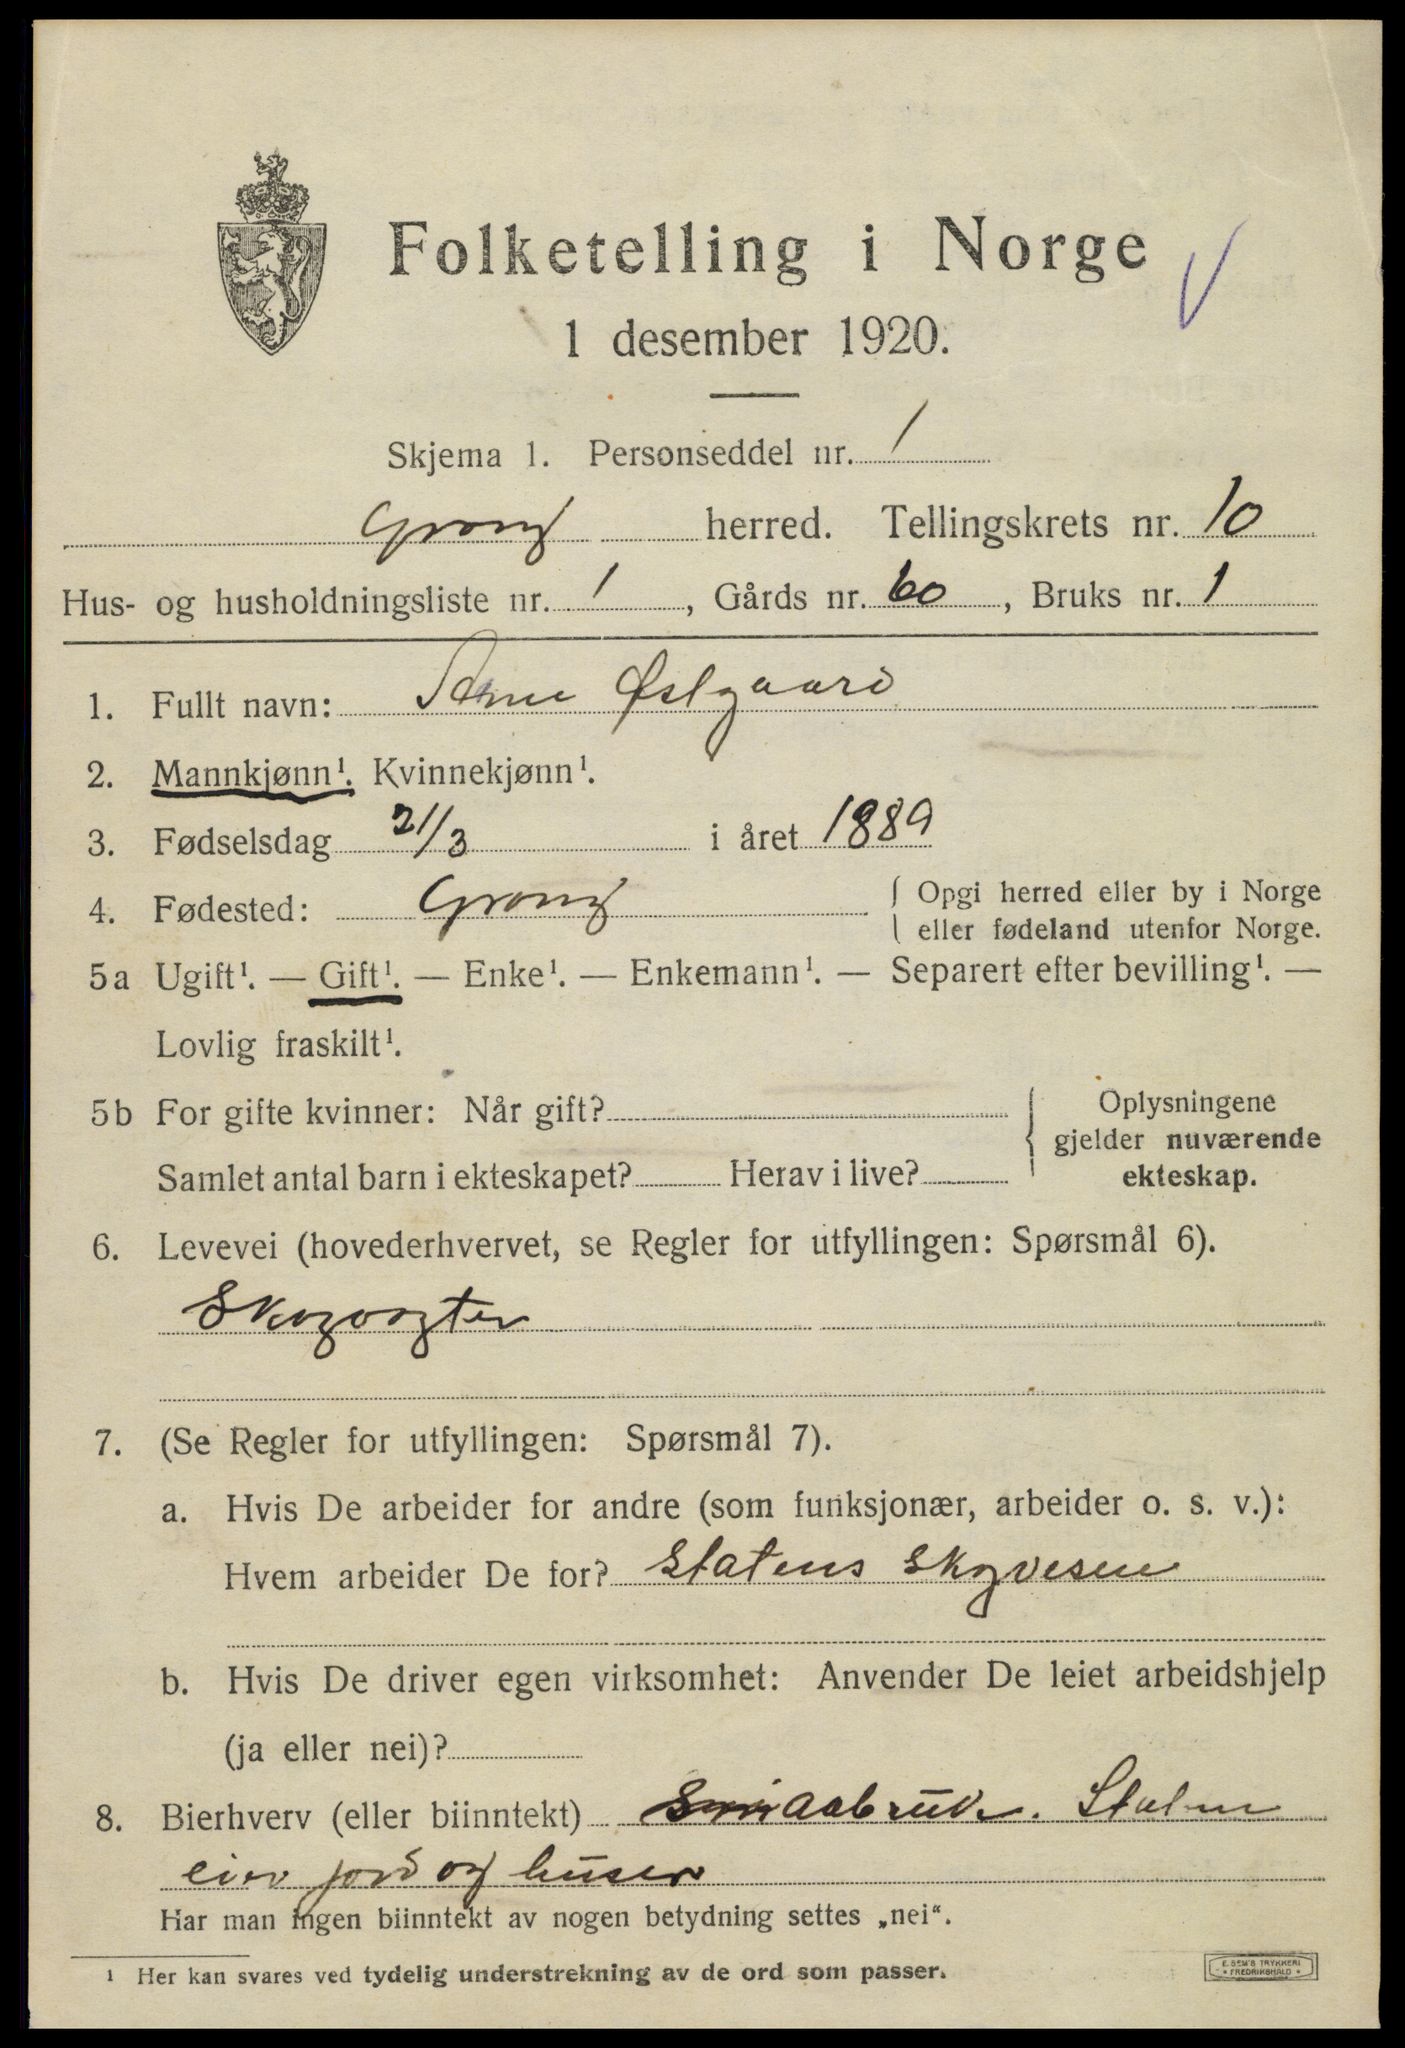 Folketelling i Norge
1 desember 1920.
Skjema 1. Personseddel nr. 1
Grong herred. Tellingskrets nr. 10
Hus- og husholdningsliste nr. 1, Gårds nr. 60, Bruks nr. 1
1. Fullt navn: Arne Østgaard
2. Mannkjønn¹. Kvinnekjønn¹.
3. Fødselsdag 21/3 i året 1889
4. Fødested: Grong { Opgi herred eller by i Norge
eller fødeland utenfor Norge.
5a Ugift¹. — Gift¹. — Enke¹. — Enkemann¹. — Separert efter bevilling¹. —
Lovlig fraskilt¹.
5b For gifte kvinner: Når gift? { Oplysningene
gjelder nuværende
Samlet antal barn i ekteskapet? Herav i live? ekteskap.
6. Levevei (hovederhvervet, se Regler for utfyllingen: Spørsmål 6).
Skogvogter
7. (Se Regler for utfyllingen: Spørsmål 7).
a. Hvis De arbeider for andre (som funksjonær, arbeider o. s. v.):
Hvem arbeider De for? Statens Skogvesen
b. Hvis De driver egen virksomhet: Anvender De leiet arbeidshjelp
(ja eller nei)?
8. Bierhverv (eller biinntekt) Smaabruk. Staten
eier jord og huser
Har man ingen biinntekt av nogen betydning settes „nei“.
¹ Her kan svares ved tydelig understrekning av de ord som passer.
E. SEM'S TRYKKERI
FREDRIKSHALD